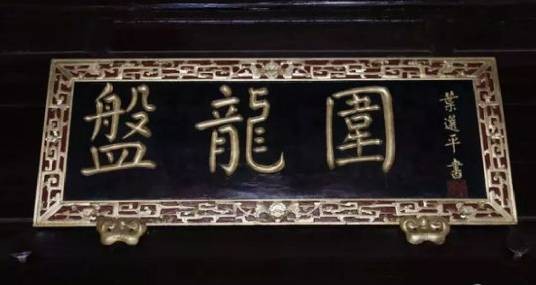 盤龍圍
葉選平書